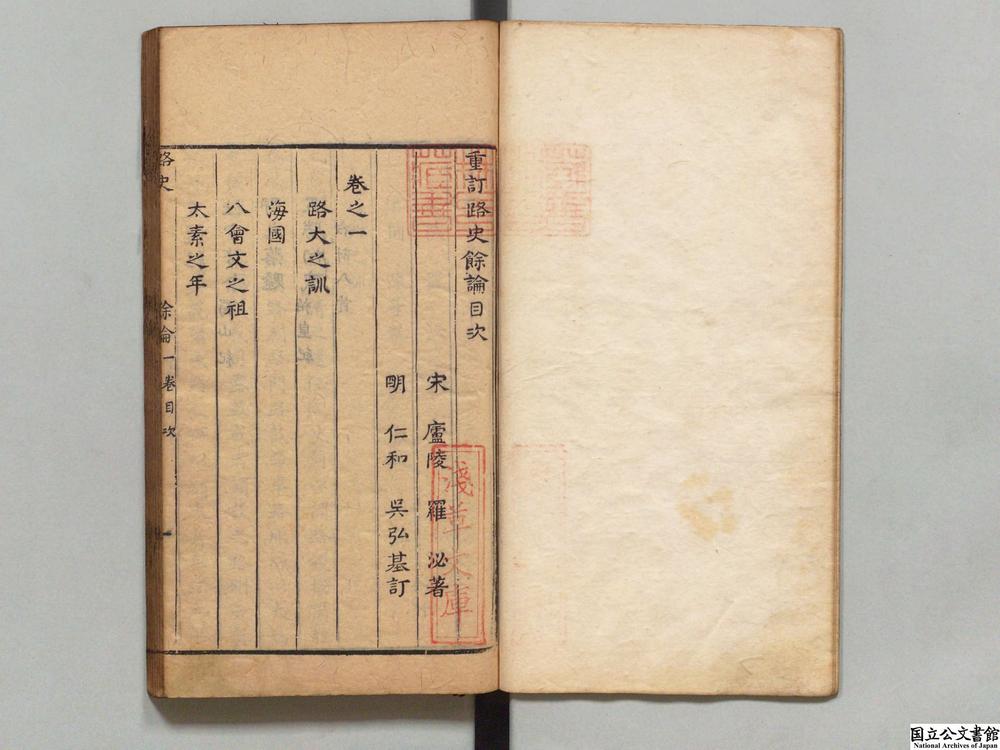 重訂路史餘論目次
宋 廬陵 羅 泌著
明 仁和 吳弘基訂
卷之一
路大之訓
海國
八會文之祖
太素之年
路史 餘論一卷目次 一
淺草文庫
国立公文書館
National Archives of Japan